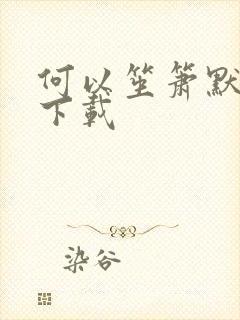 何以笙箫默
下载
染谷